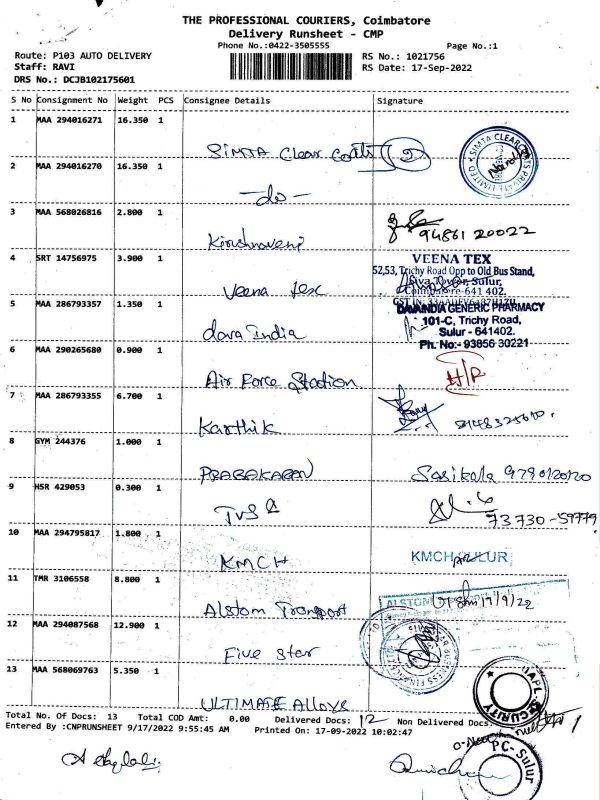 THE PROFESSIONAL COURIERS, Coimbatore
Delivery Runsheet - CMP
Phone No.:0422-3505555
Page No.:1
Route: P103 AUTO DELIVERY
RS No.: 1021756
Staff: RAVI
RS Date: 17-Sep-2022
DRS No.: DCJB102175601
S No Consignment No Weight PCS Consignee Details Signature
1 MAA 294016271 16.350 1
SIMTA Clear Coats 2
SIMTA CLEAR COATS PRIVATE LIMITED
2 MAA 294016270 16.350 1
-do-
3 MAA 568026816 2.800 1
94861 20022
Kirushnaveni
4 SRT 14756975 3.900 1
VEENA TEX
52,53, Trichy Road Opp to Old Bus Stand,
Sulur,
Coimbatore-641 402.
Veena tex
5 MAA 286793357 1.350 1
DAVAINDIA GENERIC PHARMACY
101-C, Trichy Road,
Sulur - 641402.
Ph. No:- 93856 30221
dava India
6 MAA 290265680 0.900 1
Air Force Station
H/R
7 MAA 286793355 6.700 1
Karthik
8 GYM 244376 1.000 1
PRABAKARAN
Sasikala 9790120120
9 HSR 429053 0.300 1
TVS
73730-59779
10 MAA 294795817 1.800 1
KMCH
KMCH SULUR
11 TMR 3106558 8.800 1
Alstom Transport
ALSTOM
17/9/22
12 MAA 294087568 12.900 1
Five Star
13 MAA 568069763 5.350 1
ULTIMATE Alloys
UAPL
SECURITY
Total No. Of Docs: 13 Total COD Amt: 0.00 Delivered Docs: 12 Non Delivered Docs: 1
Entered By :CNPRUNSHEET 9/17/2022 9:55:45 AM Printed On: 17-09-2022 10:02:47
PC-Sulur